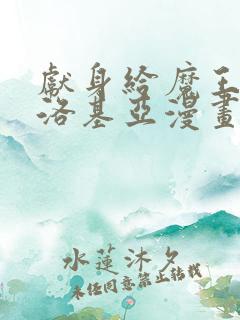 獻身給魔王伊
洛基亞漫畫
水蓮沐夕
未任同意禁止轉載